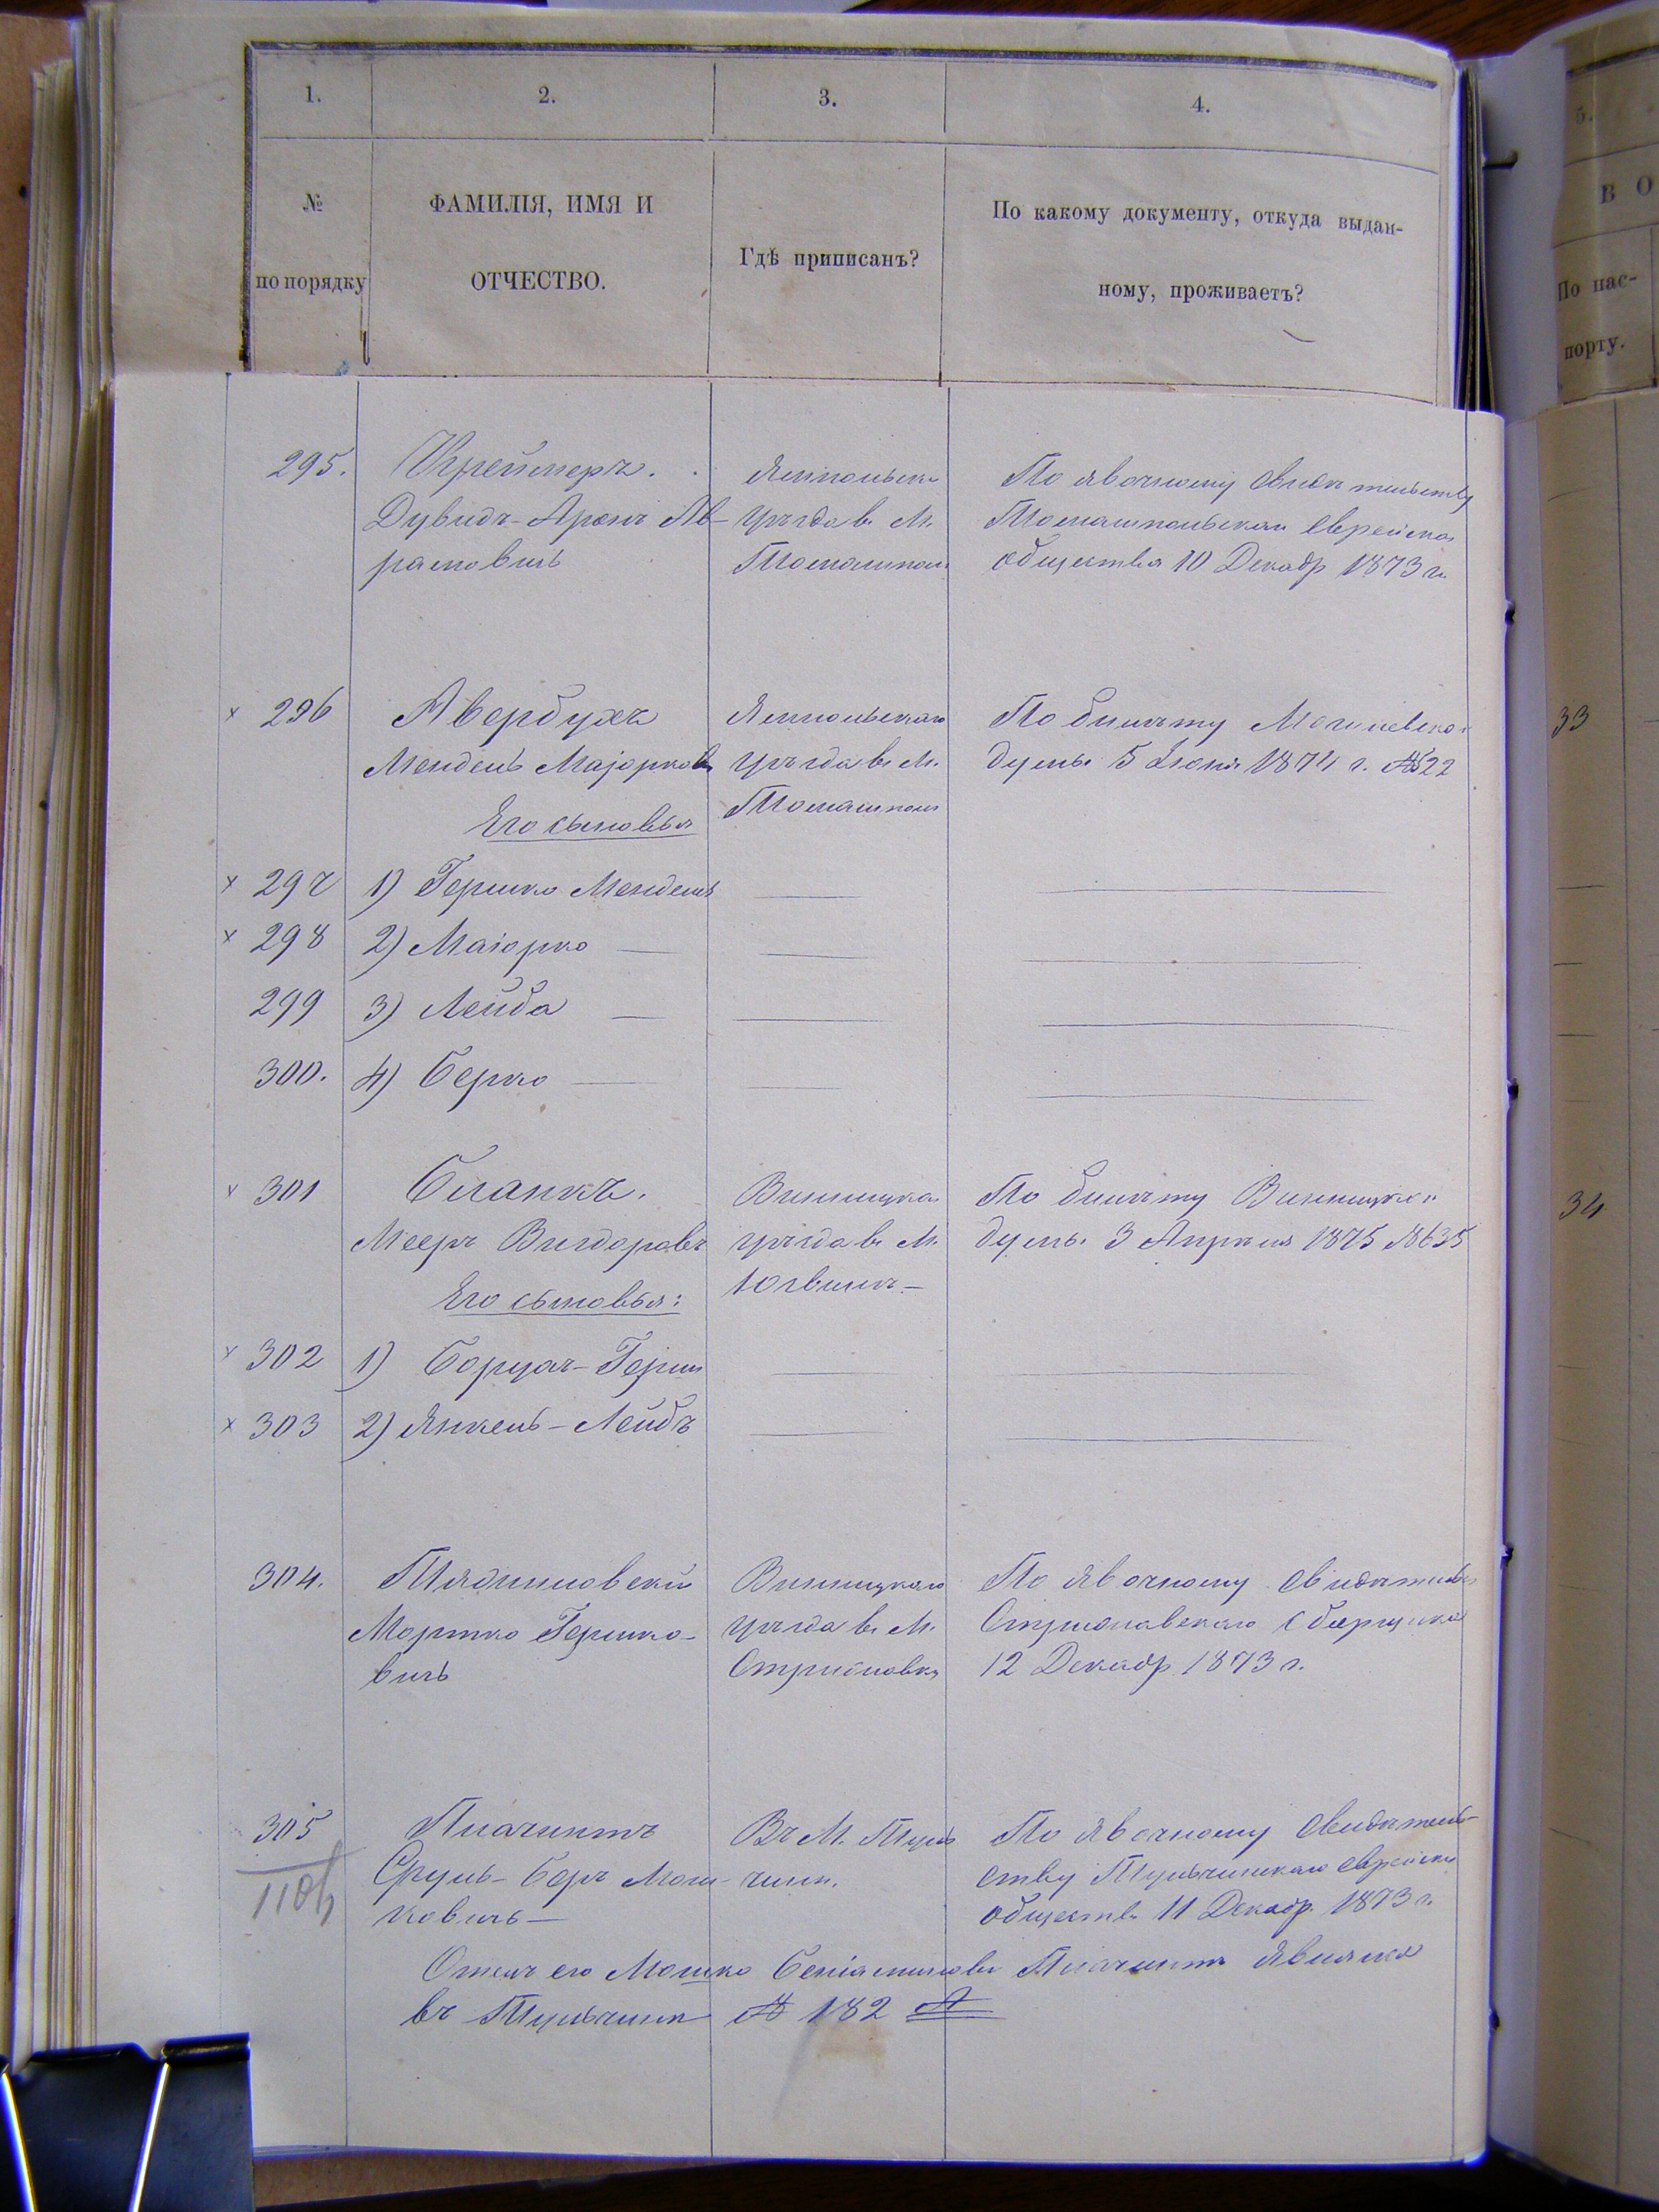 1. 2. 3. 4.
№ по порядку
ФАМИЛІЯ, ИМЯ И
ОТЧЕСТВО.
Гдѣ приписанъ?
По какому документу, откуда выдан-
ному, проживаетъ?
5.
В О
По пас-
порту.
295. Креймеръ.
Дувидъ-Аронъ Аб-
рамовичъ
Ямпольска
уѣзда в. М.
Томашпол
По явочному свидѣтельству
Томашпольскаго Еврейска
общества 10 Декабр 1873 г.
296 Авербухъ
Мендель Маіорков
Его сыновья
Ямпольскаго
уѣзда в. М.
Томашпол
По билету Могилевско
думы 5 Іюня 1874 г. № 522
33
297 1) Гершко Мендель
298 2) Маіорко —
299 3) Лейба —
300. 4) Берко —
301 Бланкъ.
Мееръ Вигдоровъ
Его сыновья:
Винницка
уѣзда в. М.
По билету Винницкой
думы 3 Апрѣля 1875 № 635
34
302 1) Борухъ-Герш
303 2) Янкель-Лейбъ
304.
Мортко Гершко-
вичъ
Винницкаго
уѣзда в. М.
Стрижавка
По явочному свидѣтельс
Стрижавскаго сборщика
12 Декабр 1873 г.
305 Плачинтъ
Сруль-Беръ Мош-
ковичъ —
Въ М. Туль-
чинѣ.
По явочному свидѣтель-
ству Тульчинскаго Еврейска
общества 11 Декабр. 1873 г.
Отецъ его Мошко Беніаминовъ Плачинтъ явился
въ Тульчинѣ № 182 А